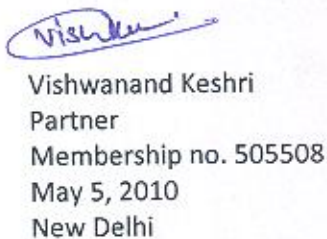 Vishwanand Keshri
Partner
Membership no. 505508
May 5, 2010
New Delhi